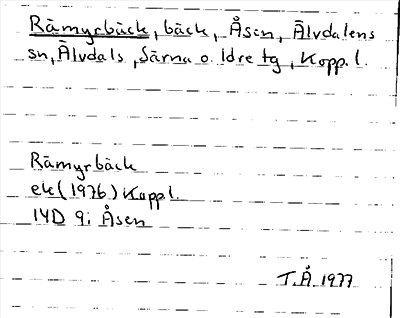 Råmyrbäck, bäck, Åsen, Älvdalens
sn, Älvdals, Särna o. Idre tg, Kopp. l.
Råmyrbäck
ek (1976) Kopp l.
14D 9i Åsen
T.Å 1977